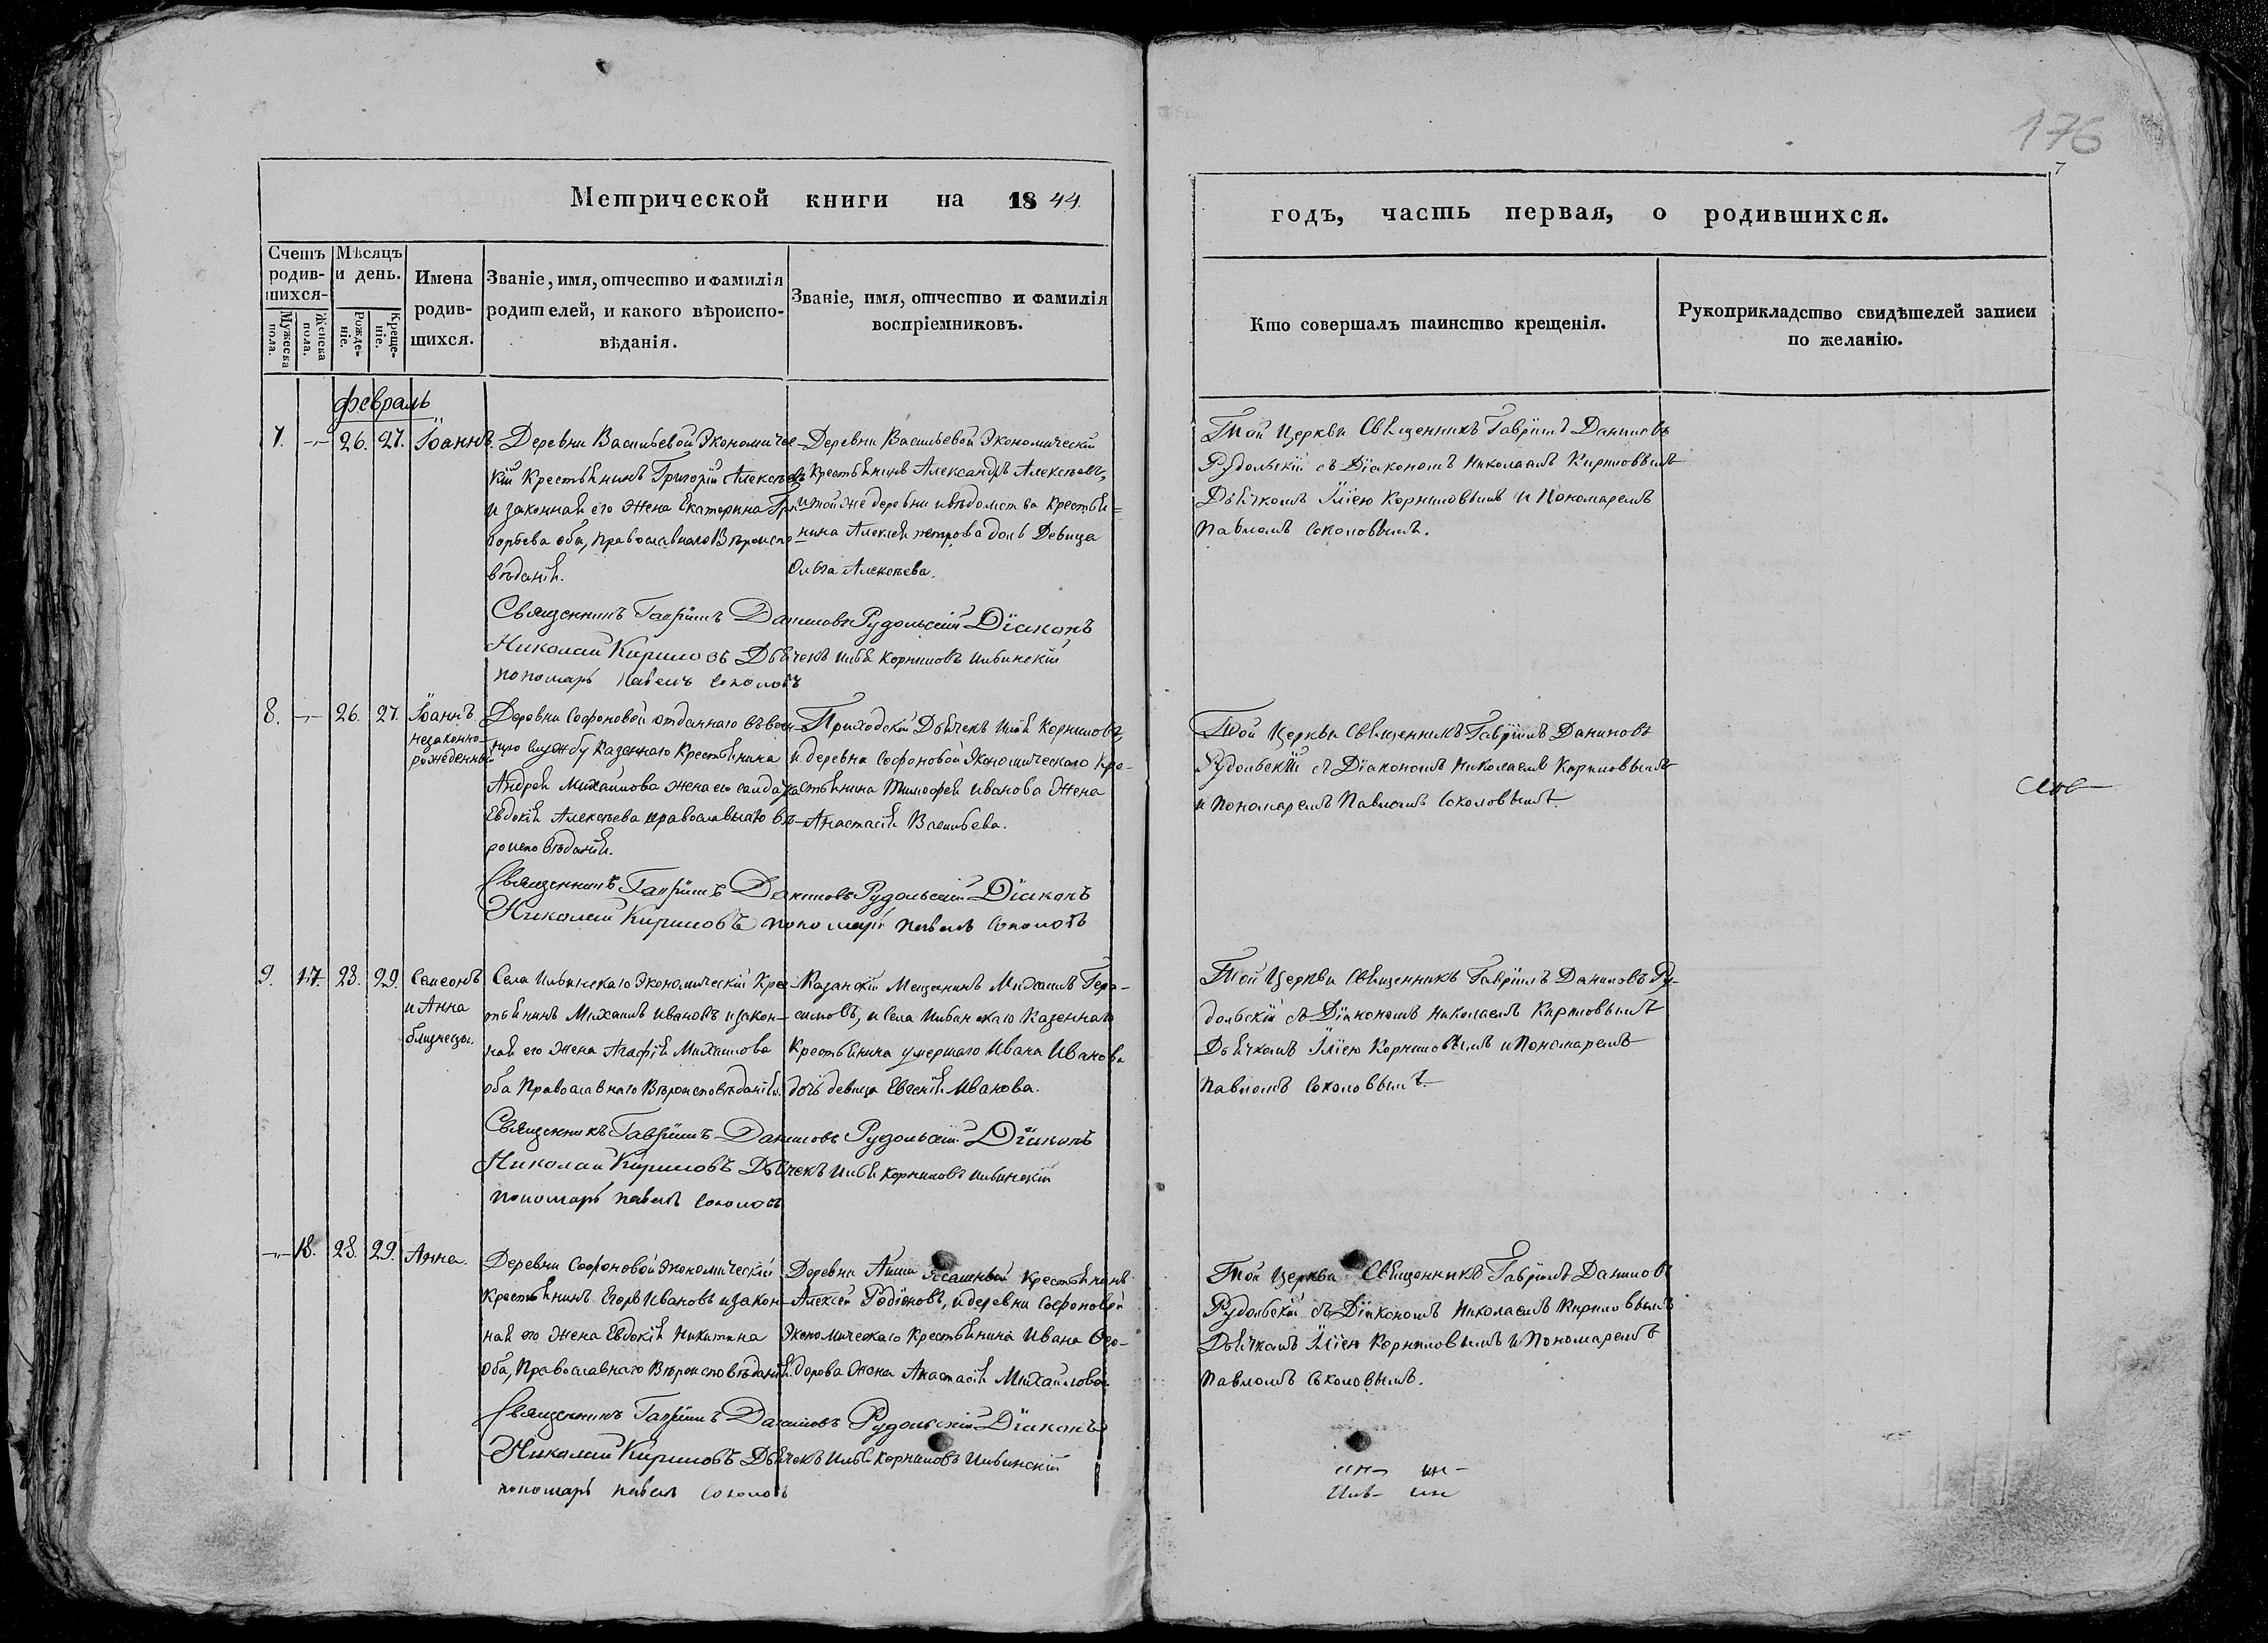 176
7
Метрической книги на 1844.
годъ, часть первая, о родившихся.
Счетъ родив-шихся.
Мужеска пола.
Женска пола.
Мѣсяцъ и день.
Рожде-ніе.
Креще-ніе.
Имена родив-шихся.
Званіе, имя, отчество и фамилія родителей, и какого вѣроиспо-вѣданія.
Званіе, имя, отчество и фамилія воспріемниковъ.
Кто совершалъ таинство крещенія.
Рукоприкладство свидѣтелей записи по желанію.
февраль
7. -"- 26. 27. Іоаннъ.
Деревни Васильевой Экономичес-
кій Крестьянинъ Григорій Алексѣевъ
и законная его жена Екатерина Гри-
горьева оба, православнаго Вѣроиспо-
вѣданія.
Деревни Васильевой Экономическій
Крестьянинъ Александръ Алексѣевъ,
и той же деревни и вѣдомства крестья-
нина Алексѣя петрова дочь Девица
Ольга Алексѣева.
Той Церкви Священникъ Гавріилъ Даниловъ
Рудольскій съ Діакономъ Николаемъ Кириловымъ
Дьячкомъ Иліею Корниловымъ и Пономаремъ
Павломъ Соколовымъ.
Священникъ Гавріилъ Даниловъ Рудольскій Діаконъ
Николай Кириловъ Дьячекъ Илья Корниловъ Ильинскій
пономарь Павелъ Соколовъ
8. -"- 26. 27. Іоаннъ
незаконно-
рожденный
Деревни Софоновой отданнаго въ воен-
ную службу Казеннаго Крестьянина
Андрея Михаилова жена его салдатка
Евдокія Алексѣева православнаго вѣ-
роисповѣданія.
Приходскій Дьячекъ Илія Корниловъ,
и деревни Софоновой Экономическаго Кре-
стьянина Тимофея Иванова Жена
Анастасія Васильева.
Той Церкви Священникъ Гавріилъ Даниловъ
Рудольскій съ Діакономъ Николаемъ Кириловымъ
и Пономаремъ Павломъ Соколовымъ.
Священникъ Гавріилъ Даниловъ Рудольскій Діаконъ
Николай Кириловъ пономарь Павелъ Соколовъ
9. 17. 28. 29. Симеонъ
и Анна
близнецы.
Села Ильинскаго Экономическій Кре-
стьянинъ Михаилъ Ивановъ и закон-
ная его Жена Агафія Михаилова
оба Православнаго Вѣроисповѣданія.
Казанскій Мещанинъ Михаилъ Гера-
симовъ, и Села Ильинскаго Казеннаго
Крестьянина умершаго Ивана Иванова
дочь девица Евгенія Иванова.
Той Церкви Священникъ Гавріилъ Даниловъ Ру-
дольскій съ Діакономъ Николаемъ Кириловымъ
Дьячкомъ Иліею Корниловымъ и Пономаремъ
Павломъ Соколовымъ.
Священникъ Гавріилъ Даниловъ Рудольскій Діаконъ
Николай Кириловъ Дьячекъ Илья Корниловъ Ильинскій
пономарь Павелъ Соколовъ
-"- 18. 28. 29. Анна.
Деревни Софоновой Экономическій
Крестьянинъ Егоръ Ивановъ и закон-
ная его Жена Евдокія Никитина
Оба, Православнаго Вѣроисповѣданія.
Деревни Ясашный Крестьянинъ
Алексѣй Родіоновъ, и деревни Софоновой
Экономическаго Крестьянина Ивана Ѳео-
дорова Жена Анастасія Михайлова
Той Церкви Священникъ Гавріилъ Даниловъ
Рудольскій съ Діакономъ Николаемъ Кириловымъ
Дьячкомъ Иліею Корниловымъ и Пономаремъ
Павломъ Соколовымъ.
Священникъ Гавріилъ Даниловъ Рудольскій Діаконъ
Николай Кириловъ Дьячекъ Илья Корниловъ Ильинскій
пономарь Павелъ Соколовъ